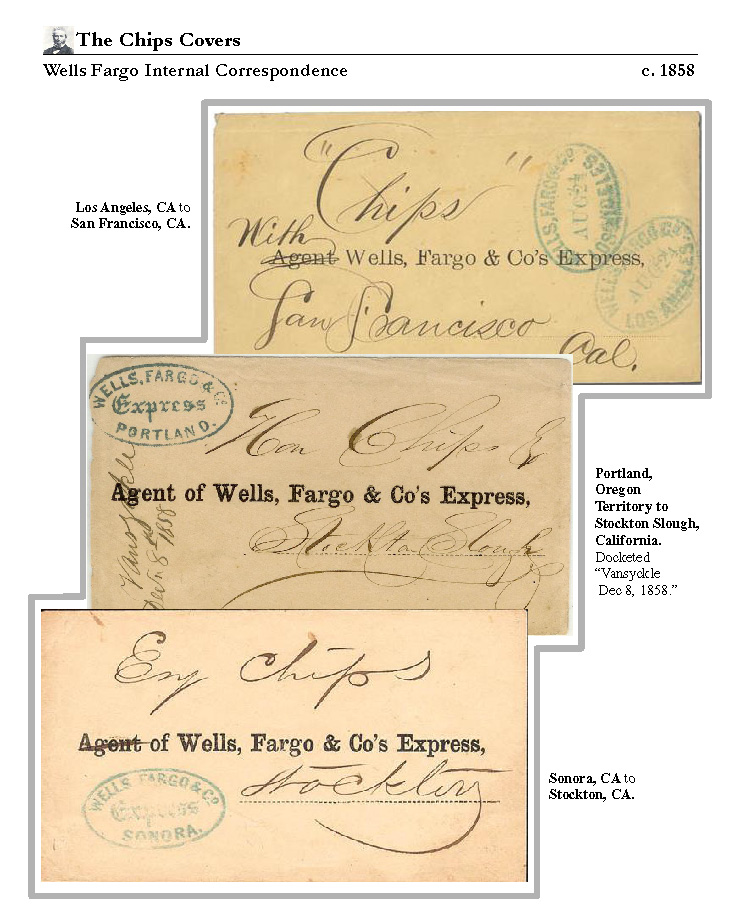 The Chips Covers
Wells Fargo Internal Correspondence c. 1858
Los Angeles, CA to
San Francisco, CA.
"Chips"
With
Agent Wells, Fargo & Co's Express,
San Francisco
Cal.
WELLS, FARGO & Co
AUG 24
LOS ANGELES
WELLS, FARGO & Co
AUG 24
LOS ANGELES
WELLS, FARGO & Co
Express
PORTLAND.
Hon Chips
Agent of Wells, Fargo & Co's Express,
Stockton Slough
Vansyckle
Dec 8 1858
Portland,
Oregon
Territory to
Stockton Slough,
California.
Docketed
“Vansyckle
Dec 8, 1858.”
Esq Chips
Agent of Wells, Fargo & Co's Express,
Stockton
WELLS FARGO & Co
Express
SONORA.
Sonora, CA to
Stockton, CA.